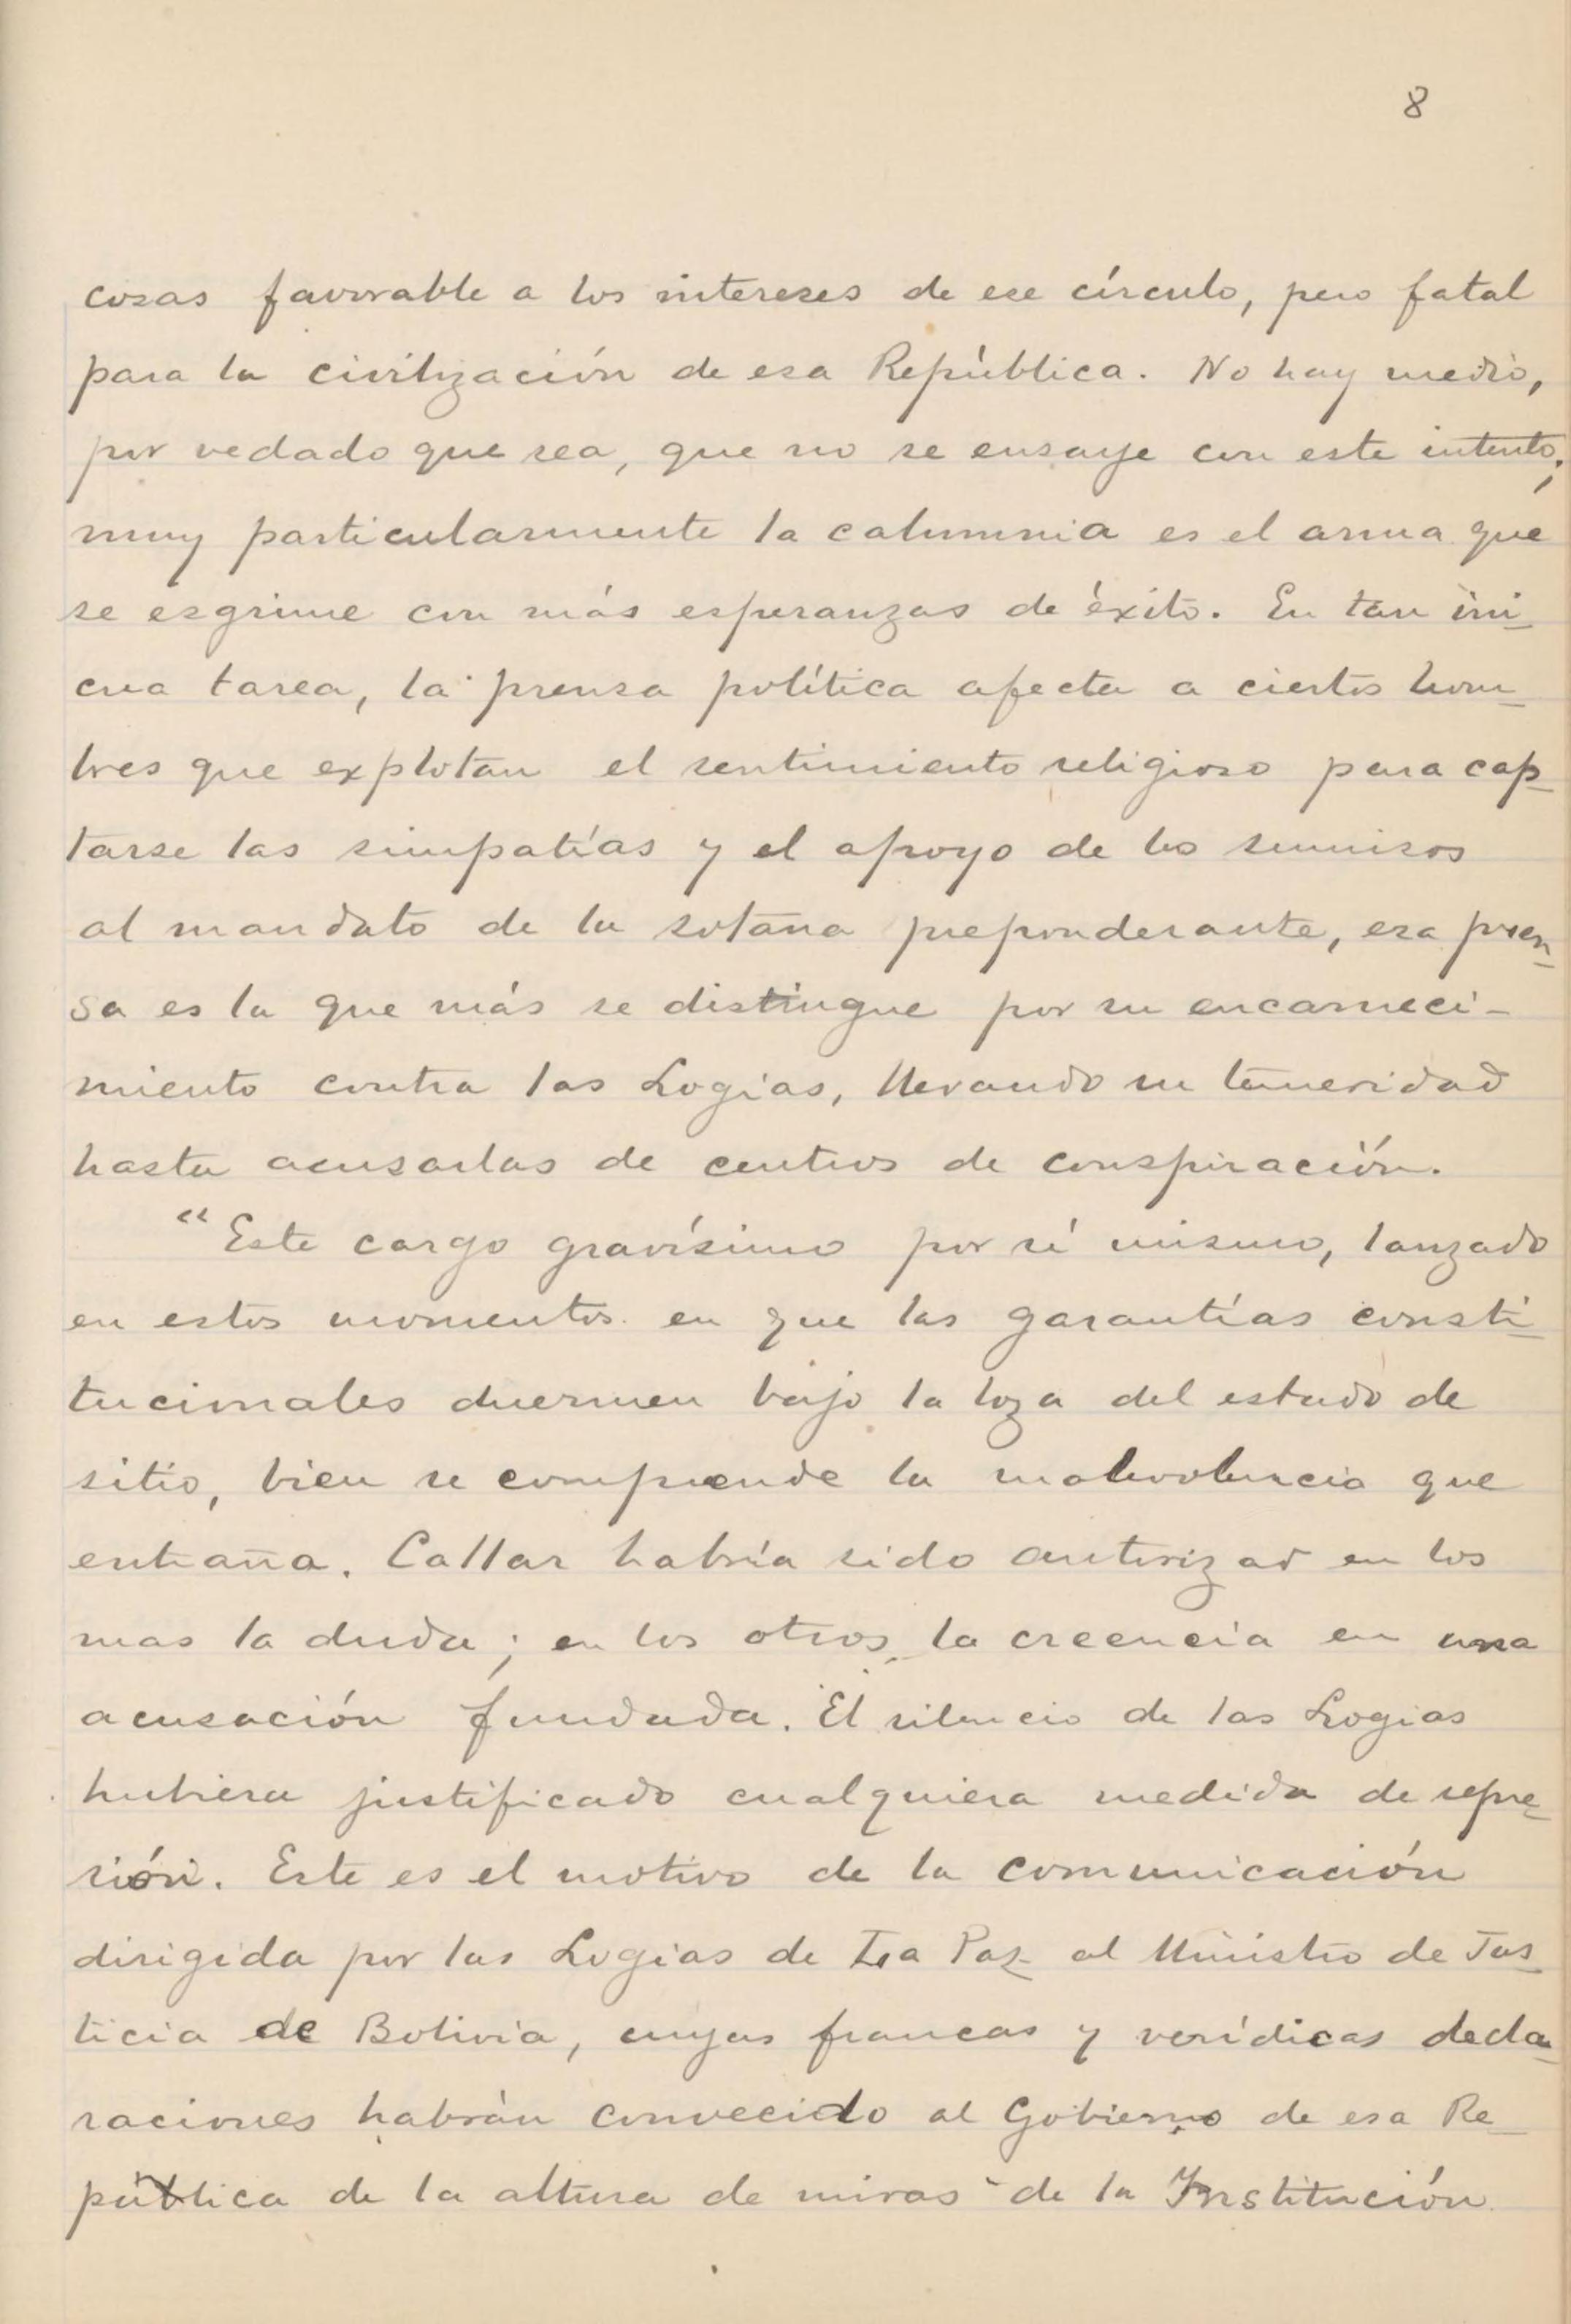 8
cosas favorable a los intereses de ese círculo, pero fatal
para la civilización de esa República. No hay medio,
por vedado que sea, que no se ensaye con este intento;
muy particularmente la calumnia es el arma que
se esgrime con más esperanzas de éxito. En tan ini-
cua tarea, la prensa política afecta a ciertos hom-
bres que explotan el sentimiento religioso para cap-
tarse las simpatías y el apoyo de los sumisos
al mandato de la sotana preponderante, esa pren-
sa es la que más se distingue por su encarneci-
miento contra las Logias, llevando su temeridad
hasta acusarlas de centros de conspiración.
"Este cargo gravísimo por sí mismo, lanzado
en estos momentos en que las garantías consti-
tucionales duermen bajo la loza del estado de
sitio, bien se comprende la malevolencia que
entraña. Callar habría sido autorizar en los
mas la duda; en los otros, la creencia en una
acusación fundada. El silencio de las Logias
hubiera justificado cualquiera medida de repre-
sión. Este es el motivo de la comunicación
dirigida por las Logias de La Paz al Ministro de Jus-
ticia de Bolivia, cuyas francas y verídicas decla-
raciones habrán convecido al Gobierno de esa Re-
pública de la altura de miras de la Institución